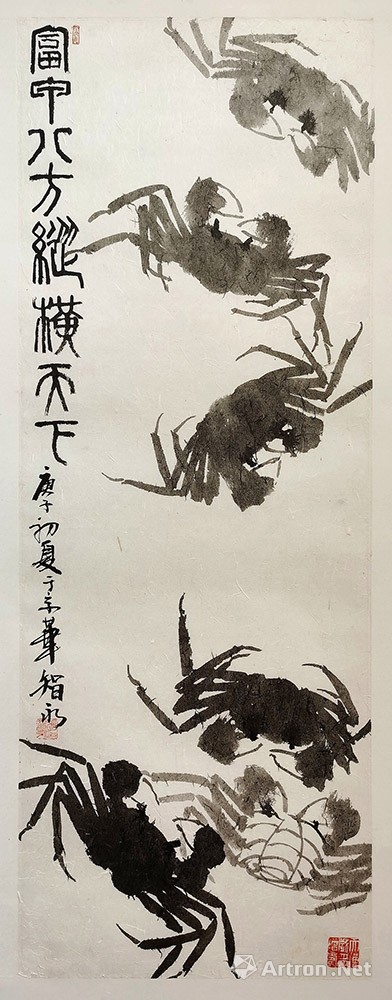 富甲八方縱橫天下
庚子初夏于京華智永
Artron.Net